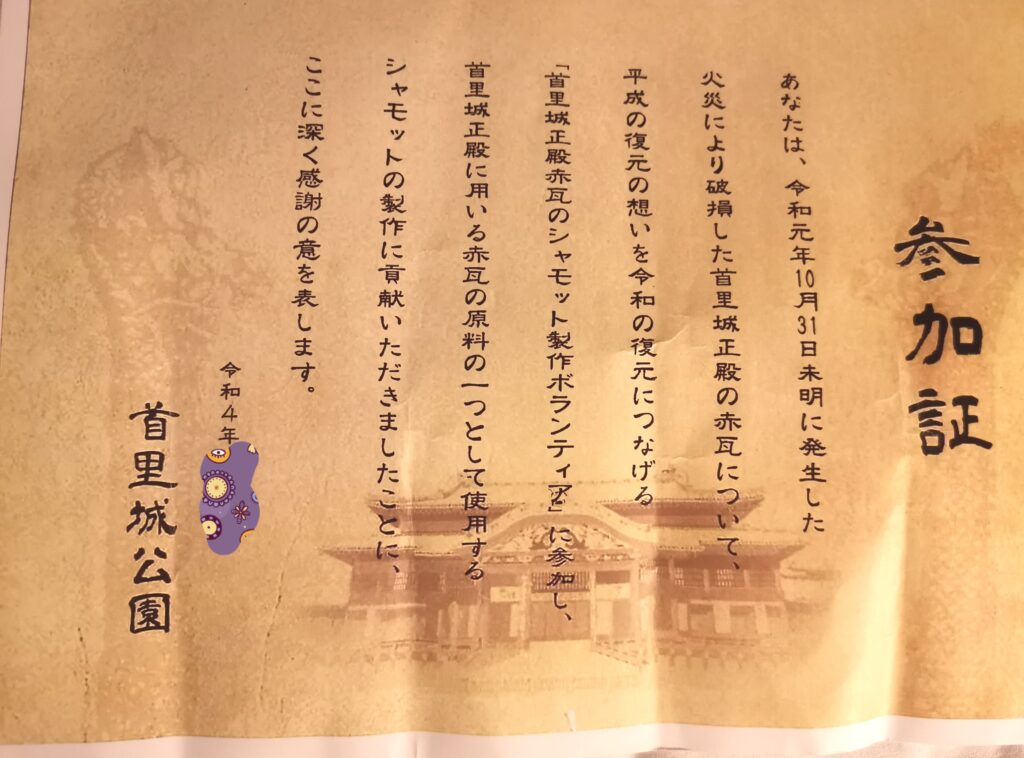 参加証
あなたは、令和元年10月31日未明に発生した
火災により破損した首里城正殿の赤瓦について、
平成の復元の想いを令和の復元につなげる
「首里城正殿赤瓦のシャモット製作ボランティア」に参加し、
首里城正殿に用いる赤瓦の原料の一つとして使用する
シャモットの製作に貢献いただきましたことに、
ここに深く感謝の意を表します。
令和4年
首里城公園